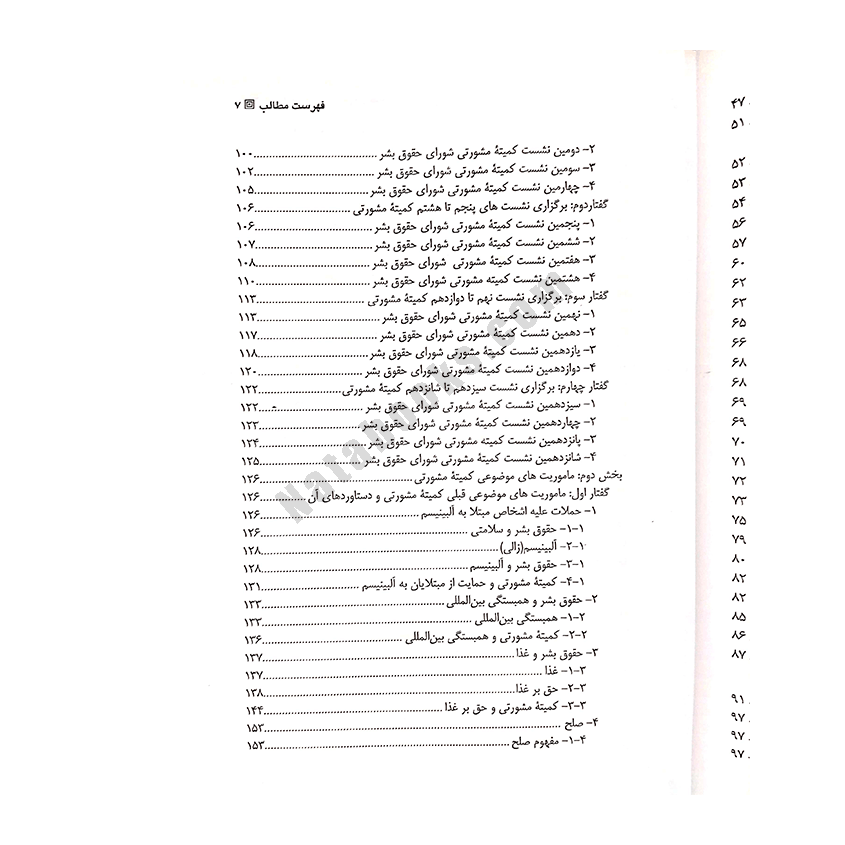 فهرست مطالب ۷
۲- دومین نشست کمیتهٔ مشورتی شورای حقوق بشر ۱۰۰
۳- سومین نشست کمیتهٔ مشورتی شورای حقوق بشر ۱۰۲
۴- چهارمین نشست کمیتهٔ مشورتی شورای حقوق بشر ۱۰۵
گفتاردوم: برگزاری نشست های پنجم تا هشتم کمیتهٔ مشورتی ۱۰۶
۱- پنجمین نشست کمیتهٔ مشورتی شورای حقوق بشر ۱۰۶
۲- ششمین نشست کمیتهٔ مشورتی شورای حقوق بشر ۱۰۷
۳- هفتمین نشست کمیتهٔ مشورتی شورای حقوق بشر ۱۰۸
۴- هشتمین نشست کمیته مشورتی شورای حقوق بشر ۱۱۰
گفتار سوم: برگزاری نشست نهم تا دوازدهم کمیتهٔ مشورتی ۱۱۳
۱- نهمین نشست کمیتهٔ مشورتی شورای حقوق بشر ۱۱۳
۲- دهمین نشست کمیتهٔ مشورتی شورای حقوق بشر ۱۱۷
۳- یازدهمین نشست کمیتهٔ مشورتی شورای حقوق بشر ۱۱۸
۴- دوازدهمین نشست کمیتهٔ مشورتی شورای حقوق بشر ۱۲۰
گفتار چهارم: برگزاری نشست سیزدهم تا شانزدهم کمیتهٔ مشورتی ۱۲۲
۱- سیزدهمین نشست کمیتهٔ مشورتی شورای حقوق بشر ۱۲۲
۲- چهاردهمین نشست کمیتهٔ مشورتی شورای حقوق بشر ۱۲۳
۳- پانزدهمین نشست کمیته مشورتی شورای حقوق بشر ۱۲۴
۴- شانزدهمین نشست کمیتهٔ مشورتی شورای حقوق بشر ۱۲۵
بخش دوم: ماموریت های موضوعی کمیتهٔ مشورتی ۱۲۶
گفتار اول: ماموریت های موضوعی قبلی کمیتهٔ مشورتی و دستاوردهای آن ۱۲۶
۱- حملات علیه اشخاص مبتلا به آلبینیسم ۱۲۶
۱-۱- حقوق بشر و سلامتی ۱۲۶
۱-۲- آلبینیسم(زالی) ۱۲۸
۱-۳- حقوق بشر و آلبینیسم ۱۲۸
۱-۴- کمیتهٔ مشورتی و حمایت از مبتلایان به آلبینیسم ۱۳۱
۲- حقوق بشر و همبستگی بین‌المللی ۱۳۳
۲-۱- همبستگی بین‌المللی ۱۳۳
۲-۲- کمیتهٔ مشورتی و همبستگی بین‌المللی ۱۳۶
۳- حقوق بشر و غذا ۱۳۷
۳-۱- غذا ۱۳۷
۳-۲- حق بر غذا ۱۳۸
۳-۳- کمیتهٔ مشورتی و حق بر غذا ۱۴۴
۴- صلح ۱۵۳
۴-۱- مفهوم صلح ۱۵۳
۴۷
۵۱
۵۲
۵۳
۵۴
۵۶
۵۷
۶۰
۶۲
۶۳
۶۵
۶۶
۶۸
۶۸
۶۹
۶۹
۷۰
۷۱
۷۲
۷۳
۷۵
۷۹
۸۰
۸۲
۸۲
۸۵
۸۶
۸۷
۹۱
۹۷
۹۷
۹۷